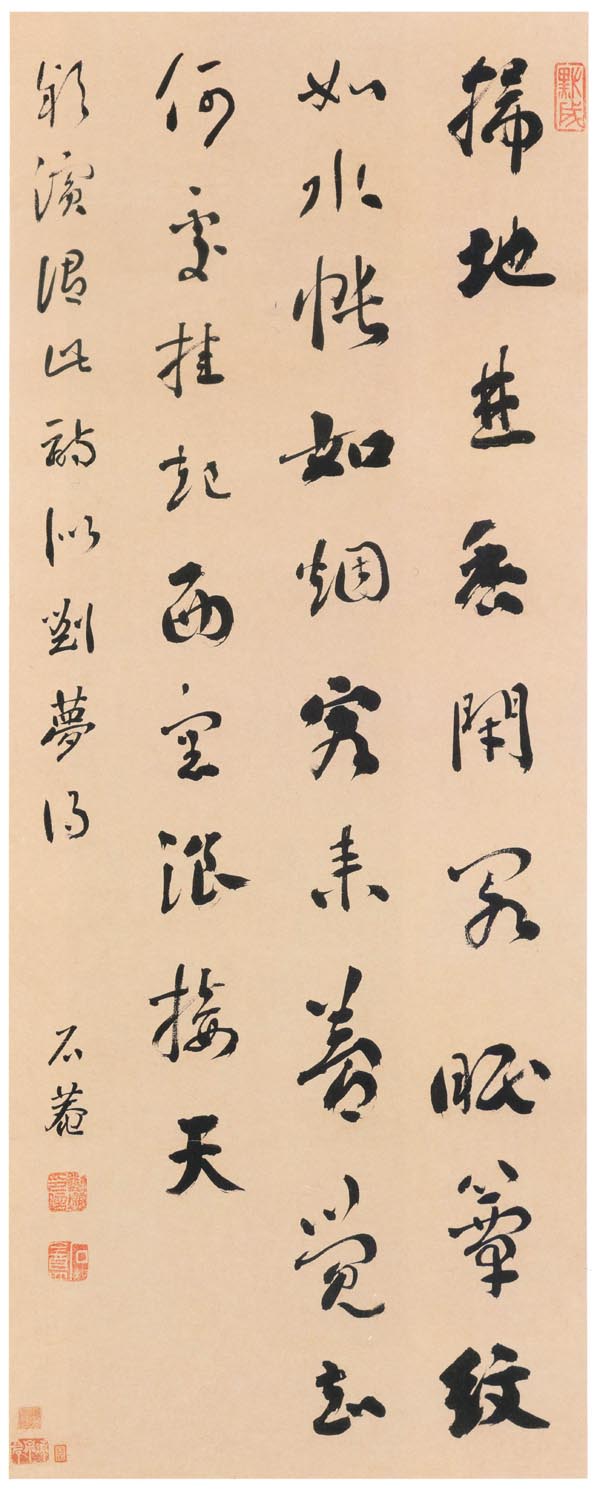 默成
掃地焚香閉閣眠簟紋
如水帳如烟客來夢覺知
何處挂起西窗浪接天
潁濱謂此詩似劉夢得
石菴